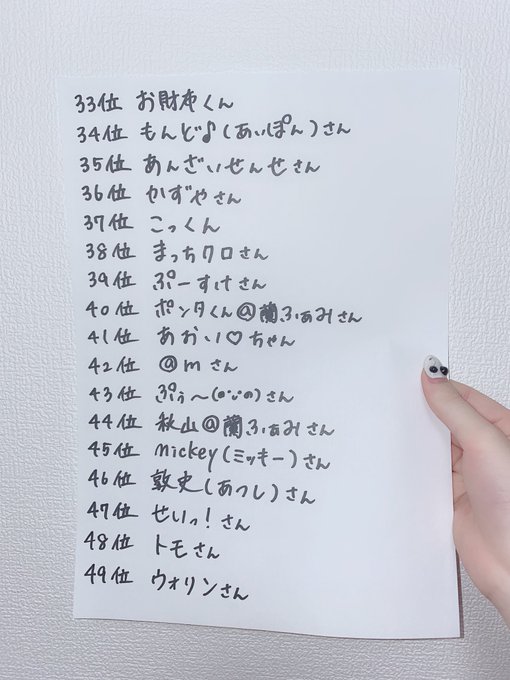 33位 お財布くん
34位 もんど♪(あいぽん)さん
35位 あんざいせんせさん
36位 かずやさん
37位 こっくん
38位 まっちクロさん
39位 ぷーすけさん
40位 ポンタくん@蘭ふぁみさん
41位 あおい♡ちゃん
42位 @mさん
43位 ぷぅ〜(о´∪`о)さん
44位 秋山@蘭ふぁみさん
45位 mickey(ミッキー)さん
46位 敦史(あつし)さん
47位 せいっ!さん
48位 トモさん
49位 ウォリンさん